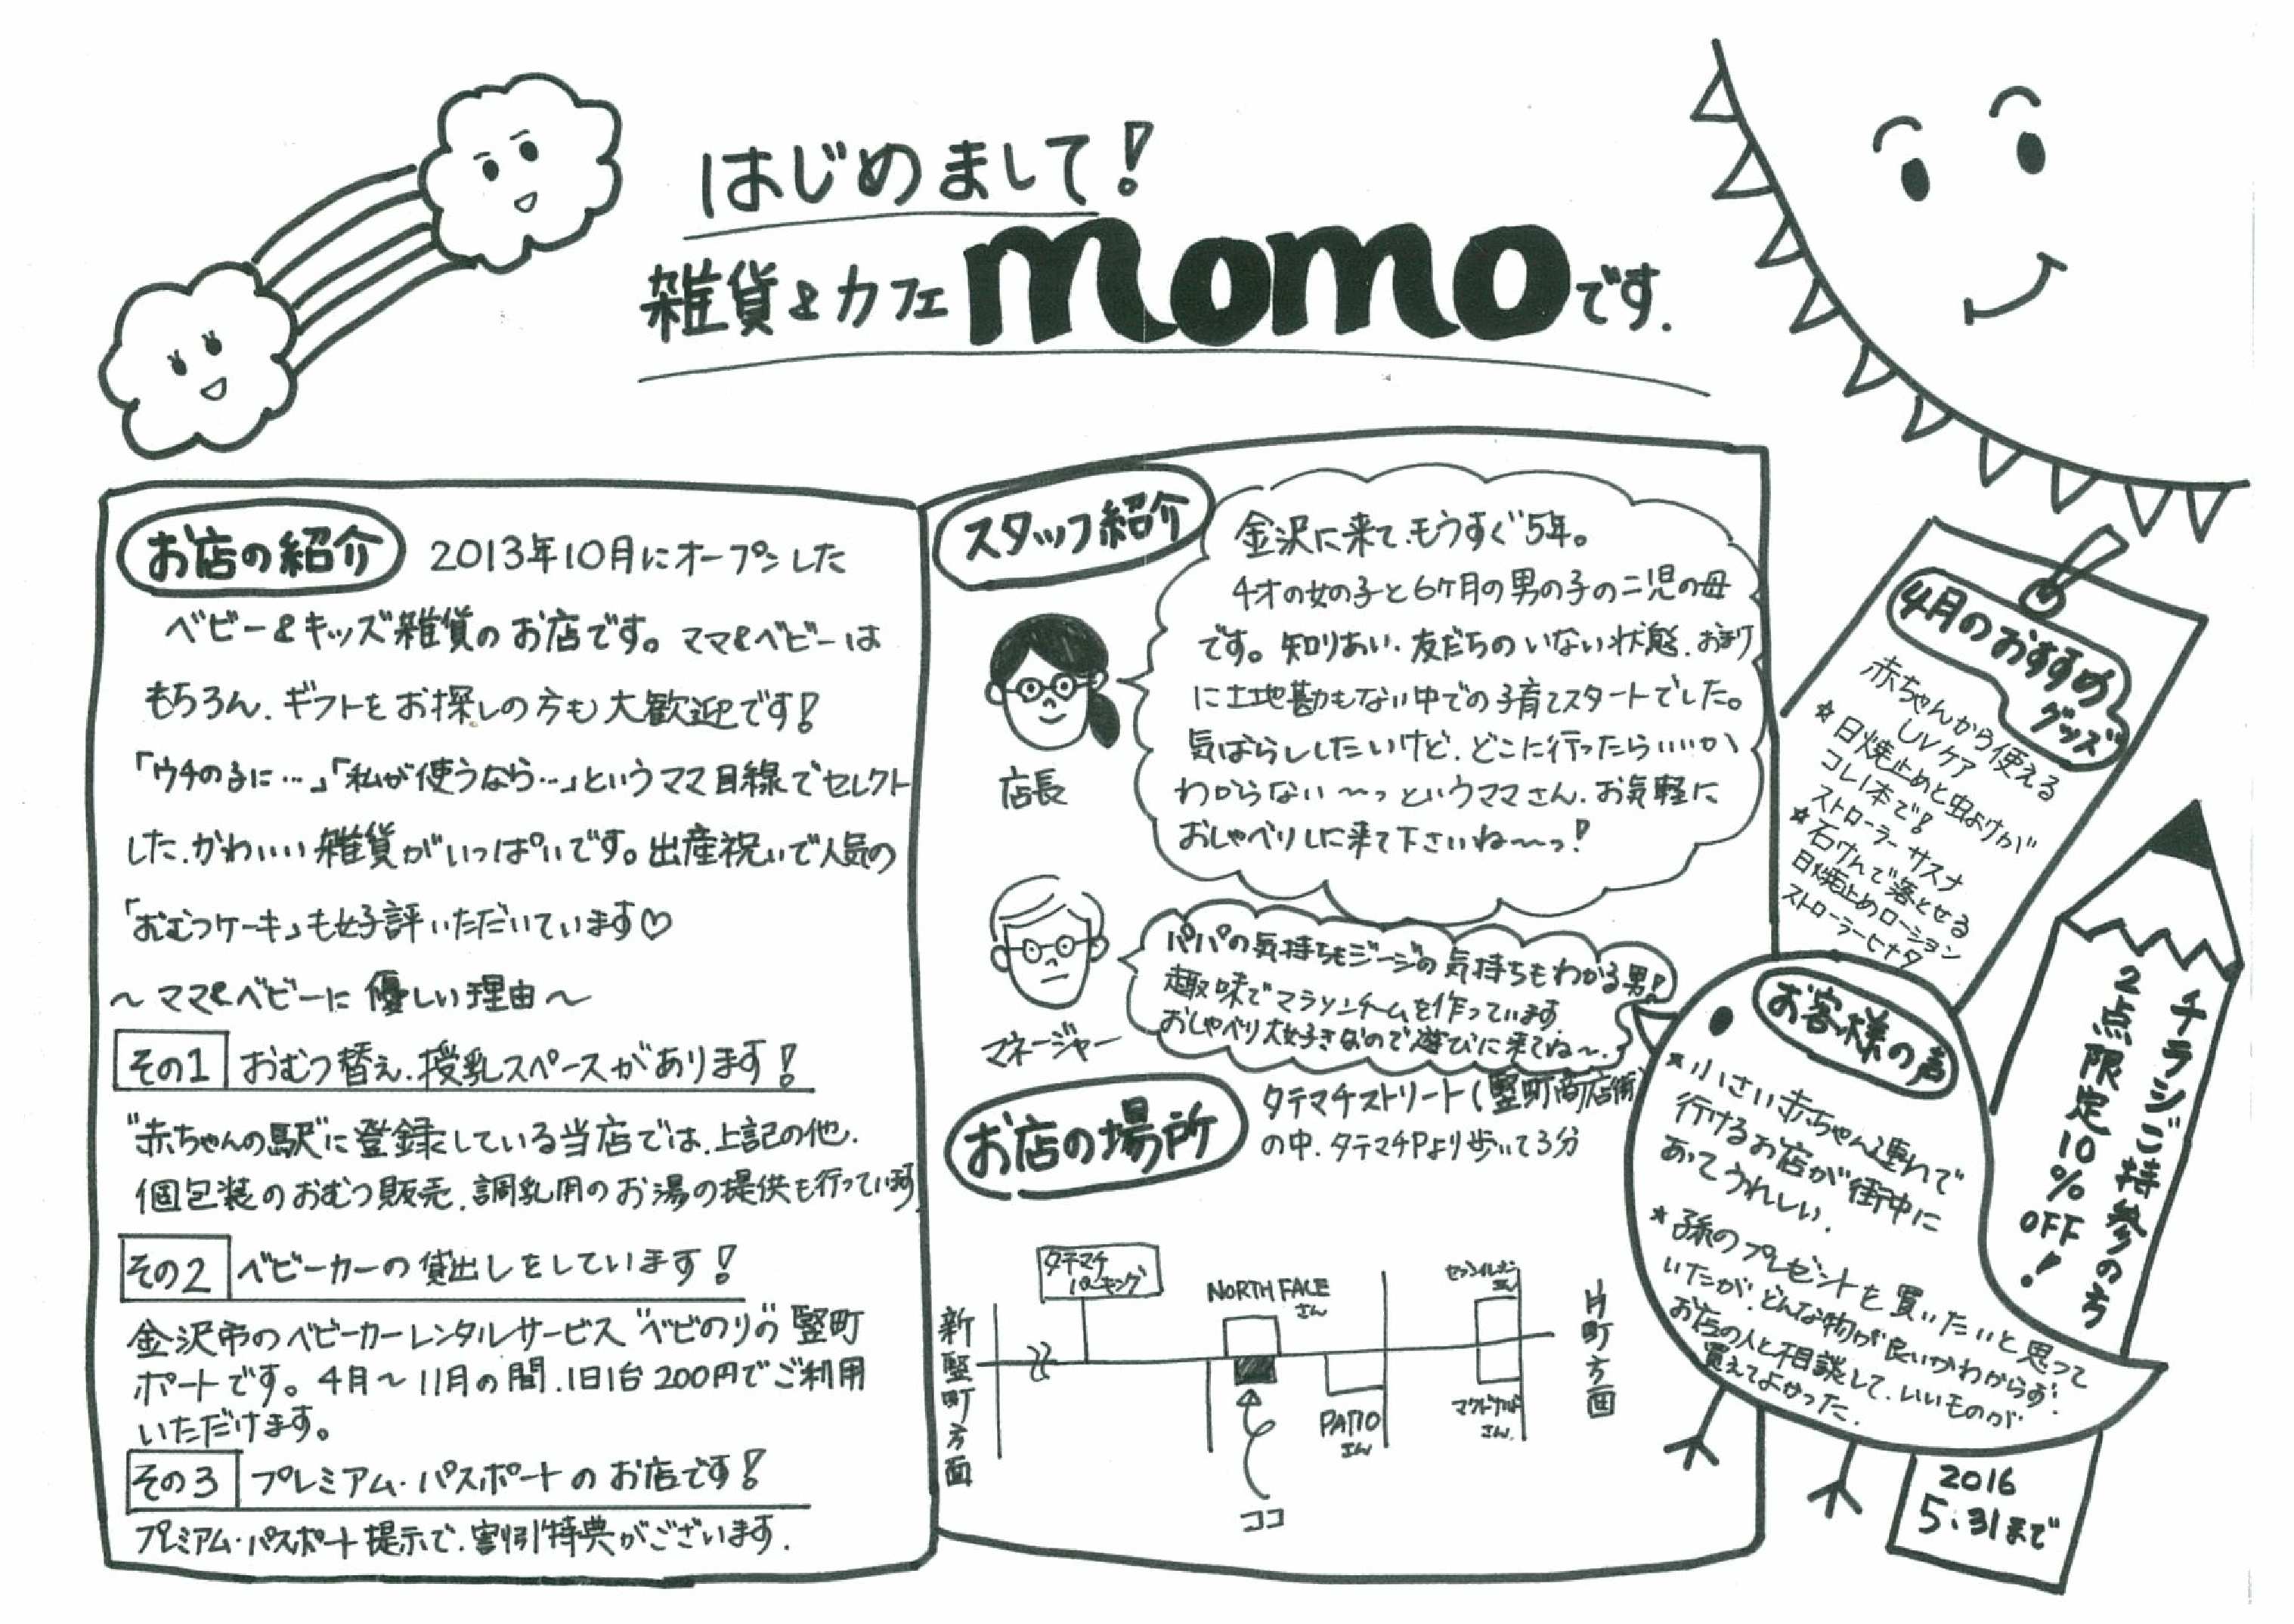 はじめまして!
雑貨&カフェmomoです.
お店の紹介
2013年10月にオープンした
ベビー&キッズ雑貨のお店です。ママ&ベビーは
もちろん、ギフトをお探しの方も大歓迎です!
「ウチの子に…」「私が使うなら…」というママ目線でセレクト
した、かわいい雑貨がいっぱいです。出産祝いで人気の
「おむつケーキ」も好評いただいています♡
~ママ&ベビーに優しい理由~
その1 おむつ替え、授乳スペースがあります!
"赤ちゃんの駅"に登録している当店では、上記の他、
個包装のおむつ販売、調乳用のお湯の提供も行っています.
その2 ベビーカーの貸出しをしています!
金沢市のベビーカーレンタルサービス"ベビのり"の竪町
ポートです。4月~11月の間、1日1台200円でご利用
いただけます。
その3 プレミアム・パスポートのお店です!
プレミアム・パスポート提示で、割引特典がございます.
スタッフ紹介
金沢に来て、もうすぐ5年。
4才の女の子と6ヶ月の男の子の二児の母
です。知りあい、友だちのいない状態、おまけ
に土地勘もない中での子育てスタートでした。
気ばらししたいけど、どこに行ったらいいか
わからない~っというママさん、お気軽に
おしゃべりしに来て下さいね~っ!
店長
パパの気持ちもジージの気持ちもわかる男!
趣味でマラソンチームを作っています.
おしゃべり大好きなので遊びに来てね~.
マネージャー
お店の場所
タテマチストリート(竪町商店街)
の中、タテマチPより歩いて3分
新竪町方面
タテマチ
パーキング
NORTH FACE
さん
セブンイレブン
さん
片町方面
PATIO
さん
マクドナルド
さん.
ココ
4月のおすすめ
グッズ
赤ちゃんから使える
UVケア
☆日焼止めと虫よけが
コレ1本で!
ストローラー サスナ
☆石けんで落とせる
日焼止めローション
ストローラーヒナタ
お客様の声
*小さい赤ちゃん連れで
行けるお店が街中に
あってうれしい.
*孫のプレゼントを買いたいと思って
いたが、どんな物が良いかわからず!
お店の人と相談して、いいものが
買えてよかった.
チラシご持参の方
2点限定10%OFF!
2016
5.31まで